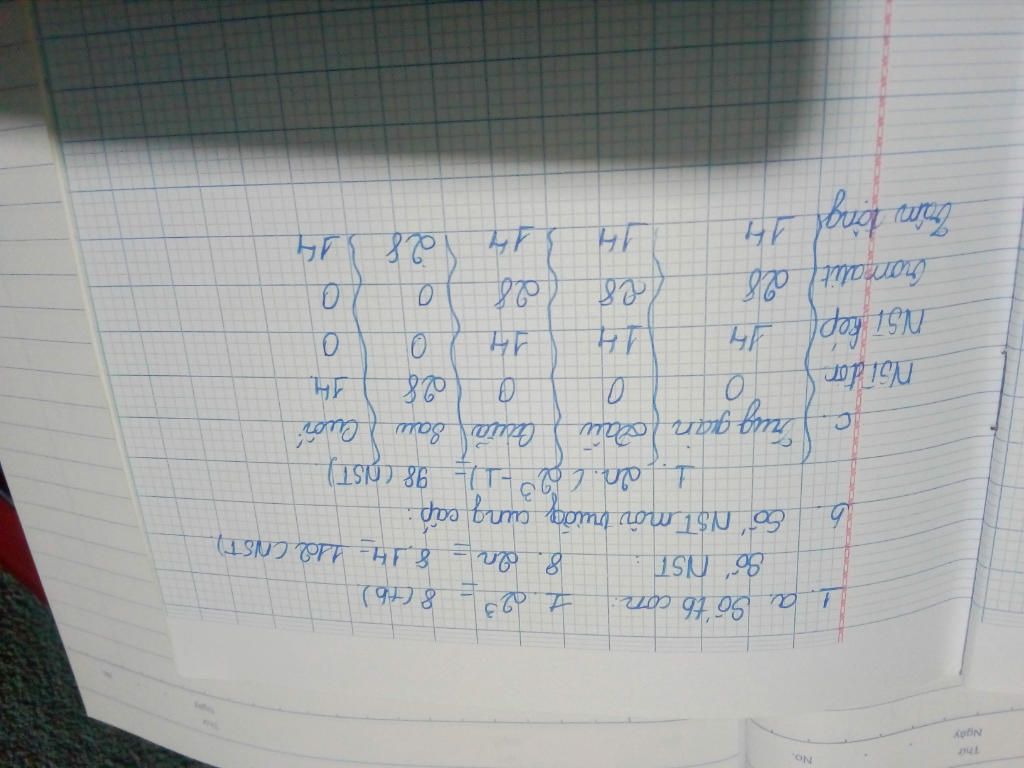 1. a. Số tb con: 1. 2³ = 8 (tb)
Số NST : 8. 2n = 8.14 = 112 (NST).
b. Số NST môi trường cung cấp:
1. 2n. (2³ - 1) = 98 (NST)
c. Trung gian Đầu Giữa Sau Cuối
NST đơn 0 0 0 28 14
NST kép 14 14 14 0 0
Cromatit 28 28 28 0 0
Tâm động 14 14 14 28 14
Thứ
Ngày
No.
Thứ
Ngày
No.